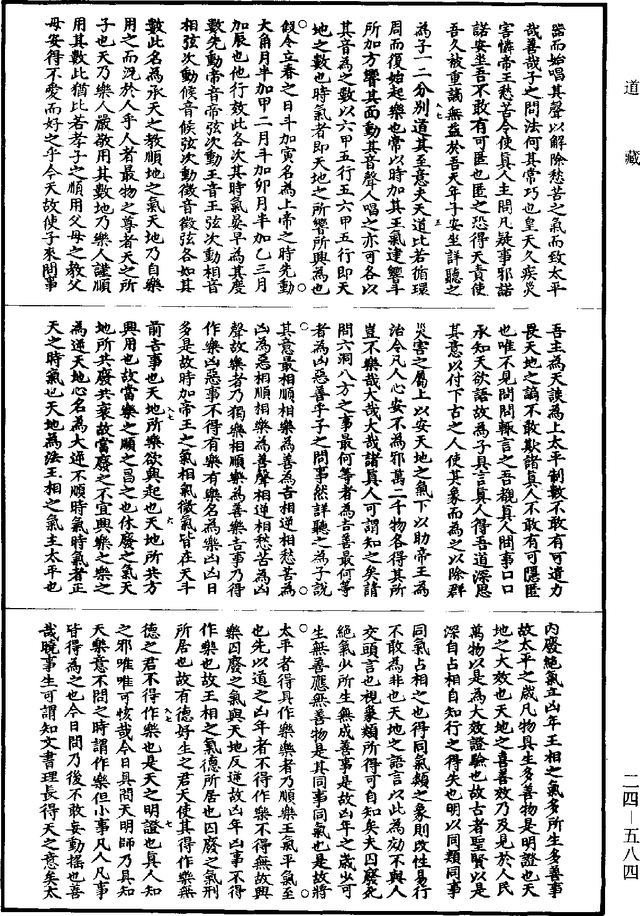 道藏
器而始唱其聲以解除愁苦之氣而致太平
哉善哉子之問法何其常巧也皇天久疾災
害憐帝王愁苦令使真人主問凡疑事邪諾
諾安坐吾不敢有可匿也匿之恐得天責使
吾久被重謫無益於吾天年子安坐詳聽之
為子一二分別道其至意夫天道比若循環
周而復始起樂也常以時加其王氣建響斗
所加方響其面動其音聲人唱之亦可各以
其音為之數以六甲五行五六甲五行即天
地之數也時氣者即天地之所響所興為也
假令立春之日斗加寅名為上帝之時先動
大角月半加甲二月斗加卯月半加乙三月
加辰也他行效此各次其時氣晏早為其度
數先動帝音帝弦次動王音王弦次動相音
相弦次動候音候弦次動微音微弦各如其
數此名為承天之教順地之氣天地乃自樂
用之而況於人乎人者最物之尊者天之所
子也天乃樂人嚴敬用其數地乃樂人謹順
用其數比猶比若孝子之順用父母之教父
母安得不愛而好之乎今天故使子來問事
吾主為天談為上太平制數不敢有可遺力
畏天地之謫不敢欺諸真人不敢有可隱匿
也唯不見問問輒言之吾親真人問事口口
承知天欲語故為子具言真人得吾道深思
其意以付下古之人使其象而為之以除群
災害之屬上以安天地之氣下以助帝王為
治令凡人心安不為邪萬二千物各得其所
豈不樂哉大哉大哉諸真人可謂知之矣請
問六洞八方之事最何等者為吉善最何等
者為凶惡善乎子之問事然詳聽之為子說
其意最相順相樂為善為吉相逆相愁苦為
凶為惡相順相樂為善聲相逆相愁苦為凶
聲故樂者乃獨樂相順樂為善樂吉事乃得
作樂凶惡事不得有樂有樂名為樂凶凶日
多是故時加帝王之氣相氣微氣皆在天斗
前吉事也天地所樂欲興起也天地所共方
興用也故當樂之順之昌之也休廢之氣天
地所共廢共衰故當廢之不宜興樂之樂之
為逆天地心名為大逆不順時氣時氣者正
天之時氣也天地為法王相之氣主太平也
內廢絕氣立凶年王相之氣多所生多善事
故太平之歲凡物具生多善物是明證也天
地之大效也天地之喜善效乃及見於人民
萬物以是為大效證驗也故古者聖賢以是
深自占相自知行之得失也明以同類同事
同氣占相之也得同氣類之象則改性易行
不敢為非也天地之語言以此為劾不與人
交頭言也視象類所得可自知矣夫囚廢死
絕氣少所生無成善事是故凶年之歲少可
生無善應無善物是其同事同氣也是故將
太平者得具作樂樂者乃順樂王氣平氣至
也先以道之凶年者不得作樂不得無故興
樂囚廢之氣與天地反逆故凶年凶事不得
作樂也故王相之氣德所居也囚廢之氣刑
所居也故有德好生之君天使其得作樂無
德之君不得作樂也是天之明證也真人知
之邪唯唯可恢哉今日具問天明師乃具知
天樂意不問之時謂作樂但小事凡人凡事
皆得為之也今日問乃後不敢妄動搖也善
哉曉事生可謂知文書理長得天之意矣太
二四—五八四